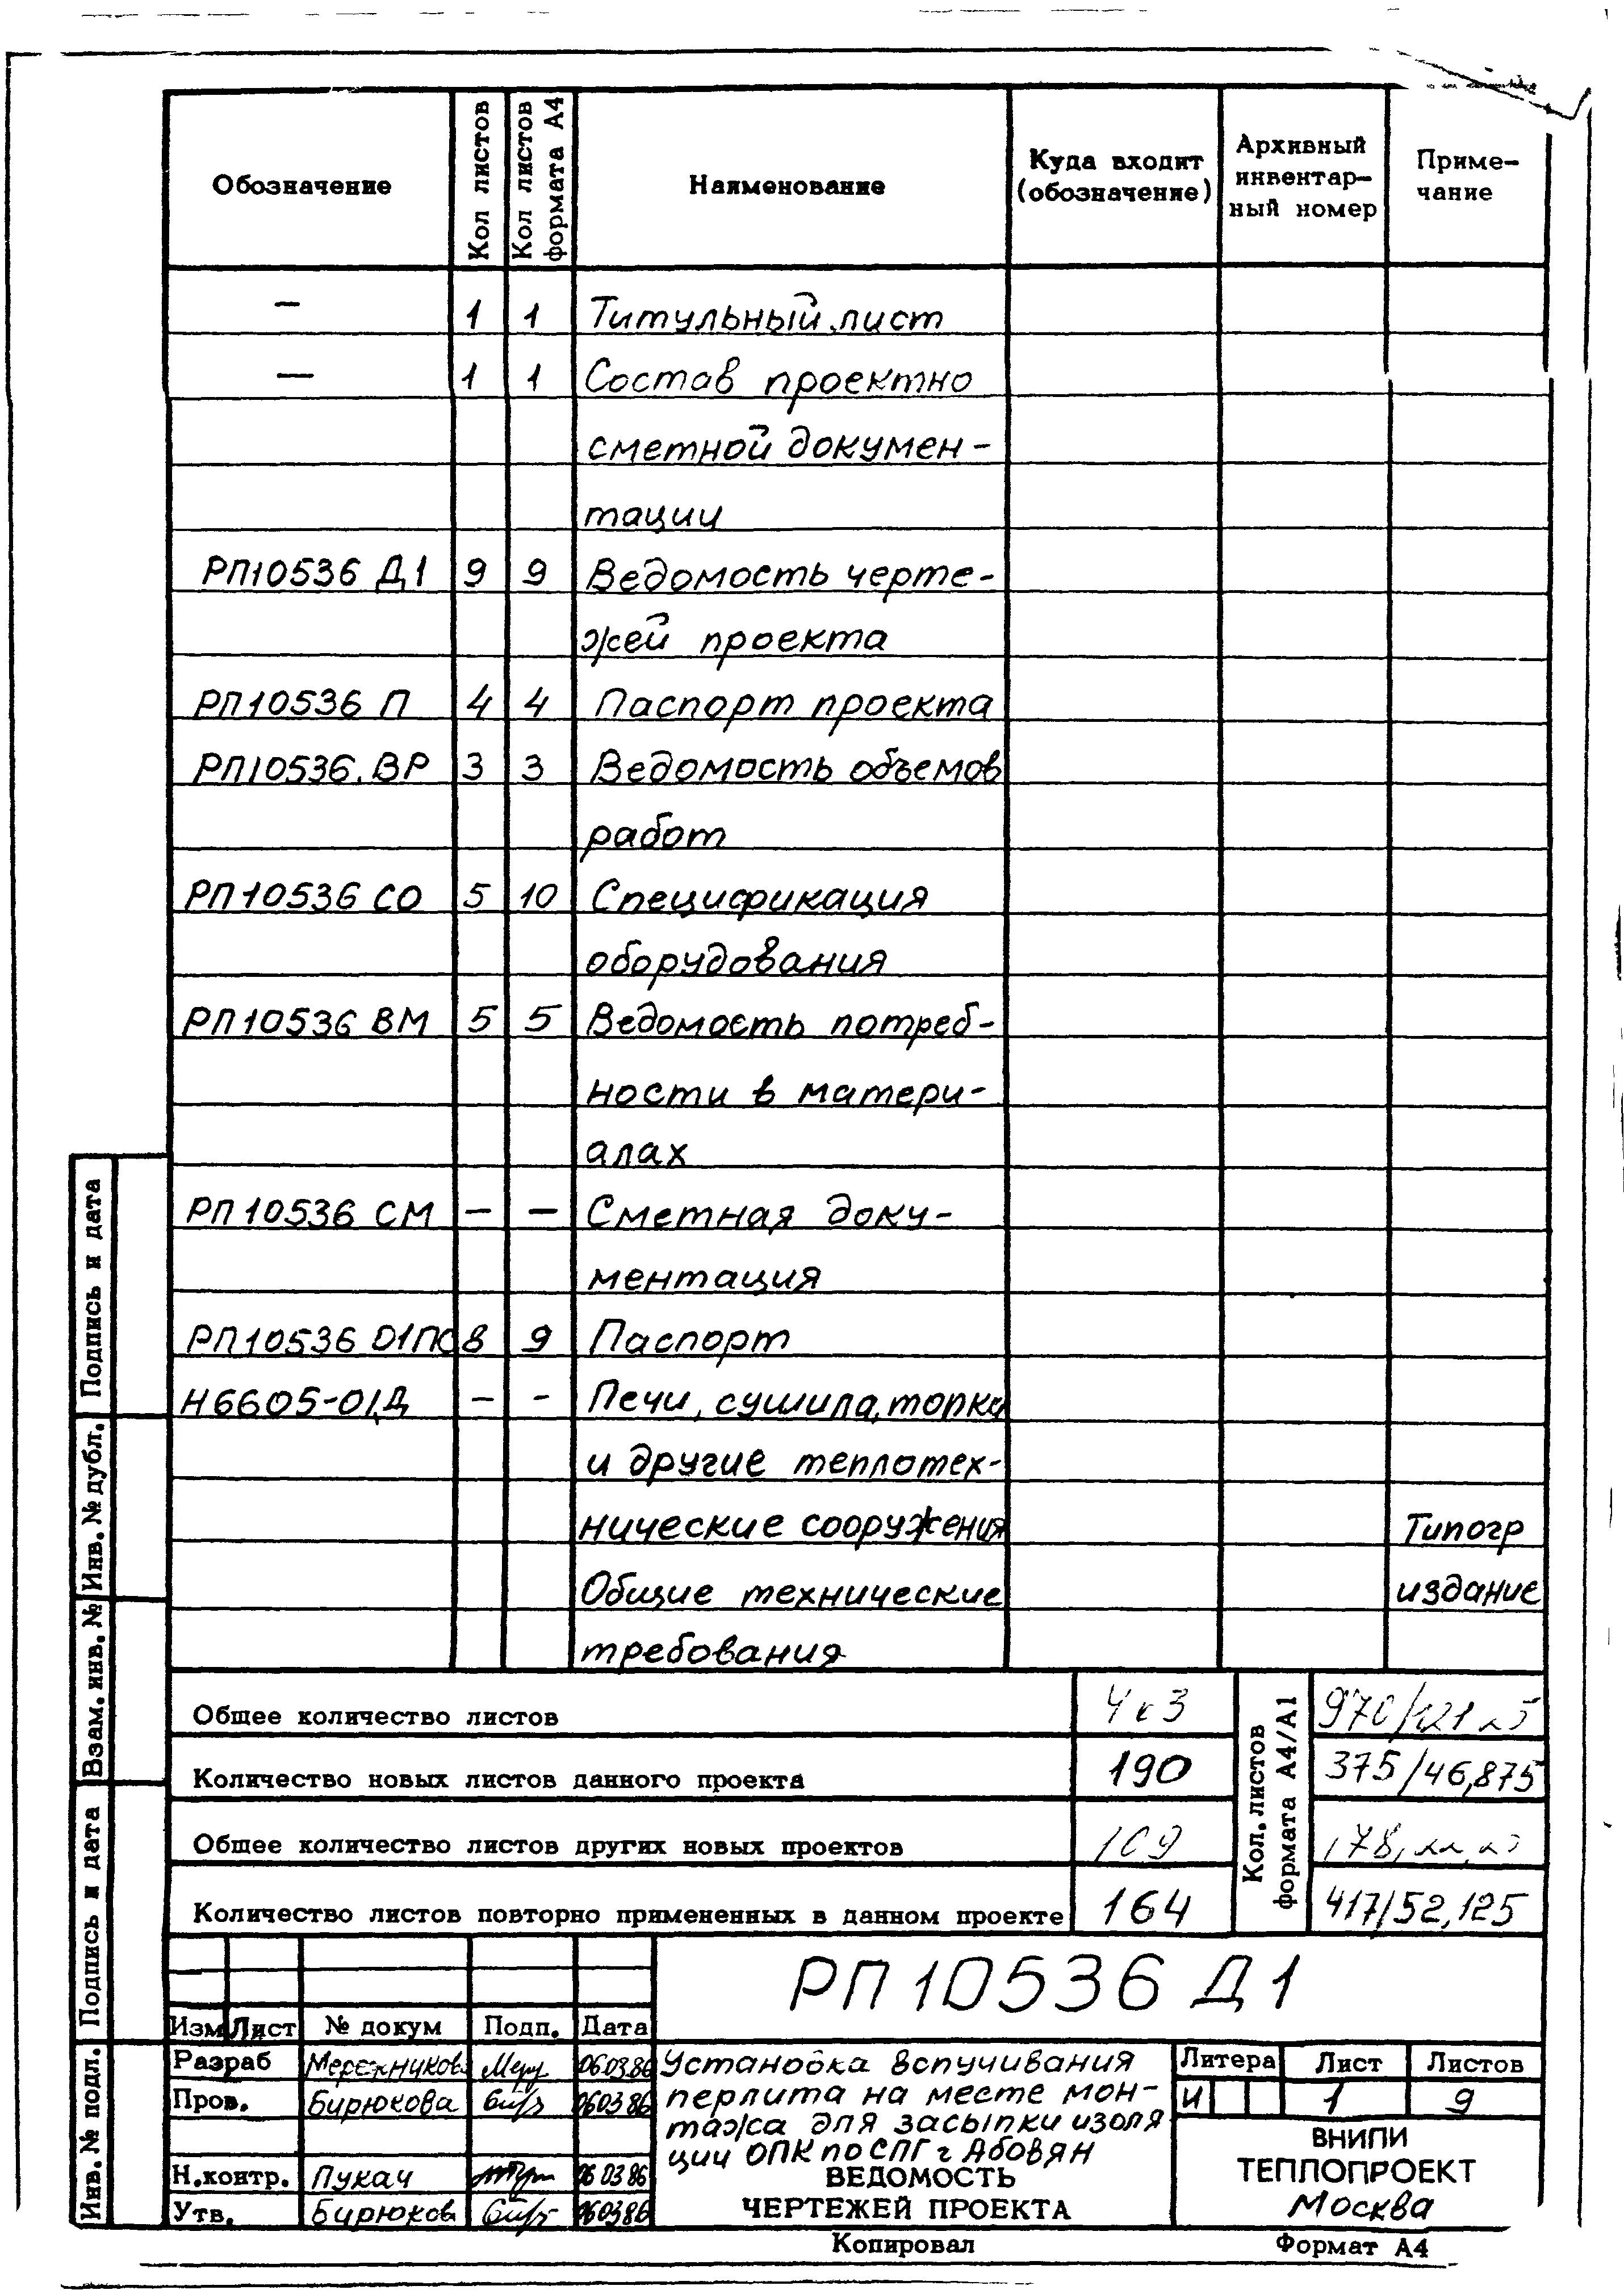 Обозначение Кол листов Кол листов формата А4 Наименование Куда входит (обозначение) Архивный инвентар- ный номер Приме- чание
— 1 1 Титульный лист
— 1 1 Состав проектно
сметной докумен-
тации
РП10536 Д1 9 9 Ведомость черте-
жей проекта
РП10536 П 4 4 Паспорт проекта
РП10536.ВР 3 3 Ведомость объемов
работ
РП10536 СО 5 10 Спецификация
оборудования
РП10536 ВМ 5 5 Ведомость потреб-
ности в матери-
алах
РП10536 СМ – – Сметная доку-
ментация
РП10536 01ПС 8 9 Паспорт
Н6605-01Д – - Печи, сушила, топки
и другие теплотех-
нические сооружения Типогр
Общие технические издание
требования
Общее количество листов
Количество новых листов данного проекта 190 375/46,875
Общее количество листов других новых проектов
Количество листов повторно примененных в данном проекте 164 417/52,125
Кол. листов формата А4/А1
РП10536 Д1
Изм Лист № докум Подп. Дата
Разраб Мережников 06.03.86
Пров. Бирюкова 06 03 86
Н.контр. Пукач 06 03 86
Утв. Бирюков 06 03 86
Установка вспучивания
перлита на месте мон-
тажа для засыпки изоля
ции ОПК по СПГ г Абовян
ВЕДОМОСТЬ
ЧЕРТЕЖЕЙ ПРОЕКТА
Литера Лист Листов
И 1 9
ВНИПИ
ТЕПЛОПРОЕКТ
Москва
Копировал Формат А4
Подпись и дата
Инв. № дубл.
Взам. инв. №
Подпись и дата
Инв. № подл.